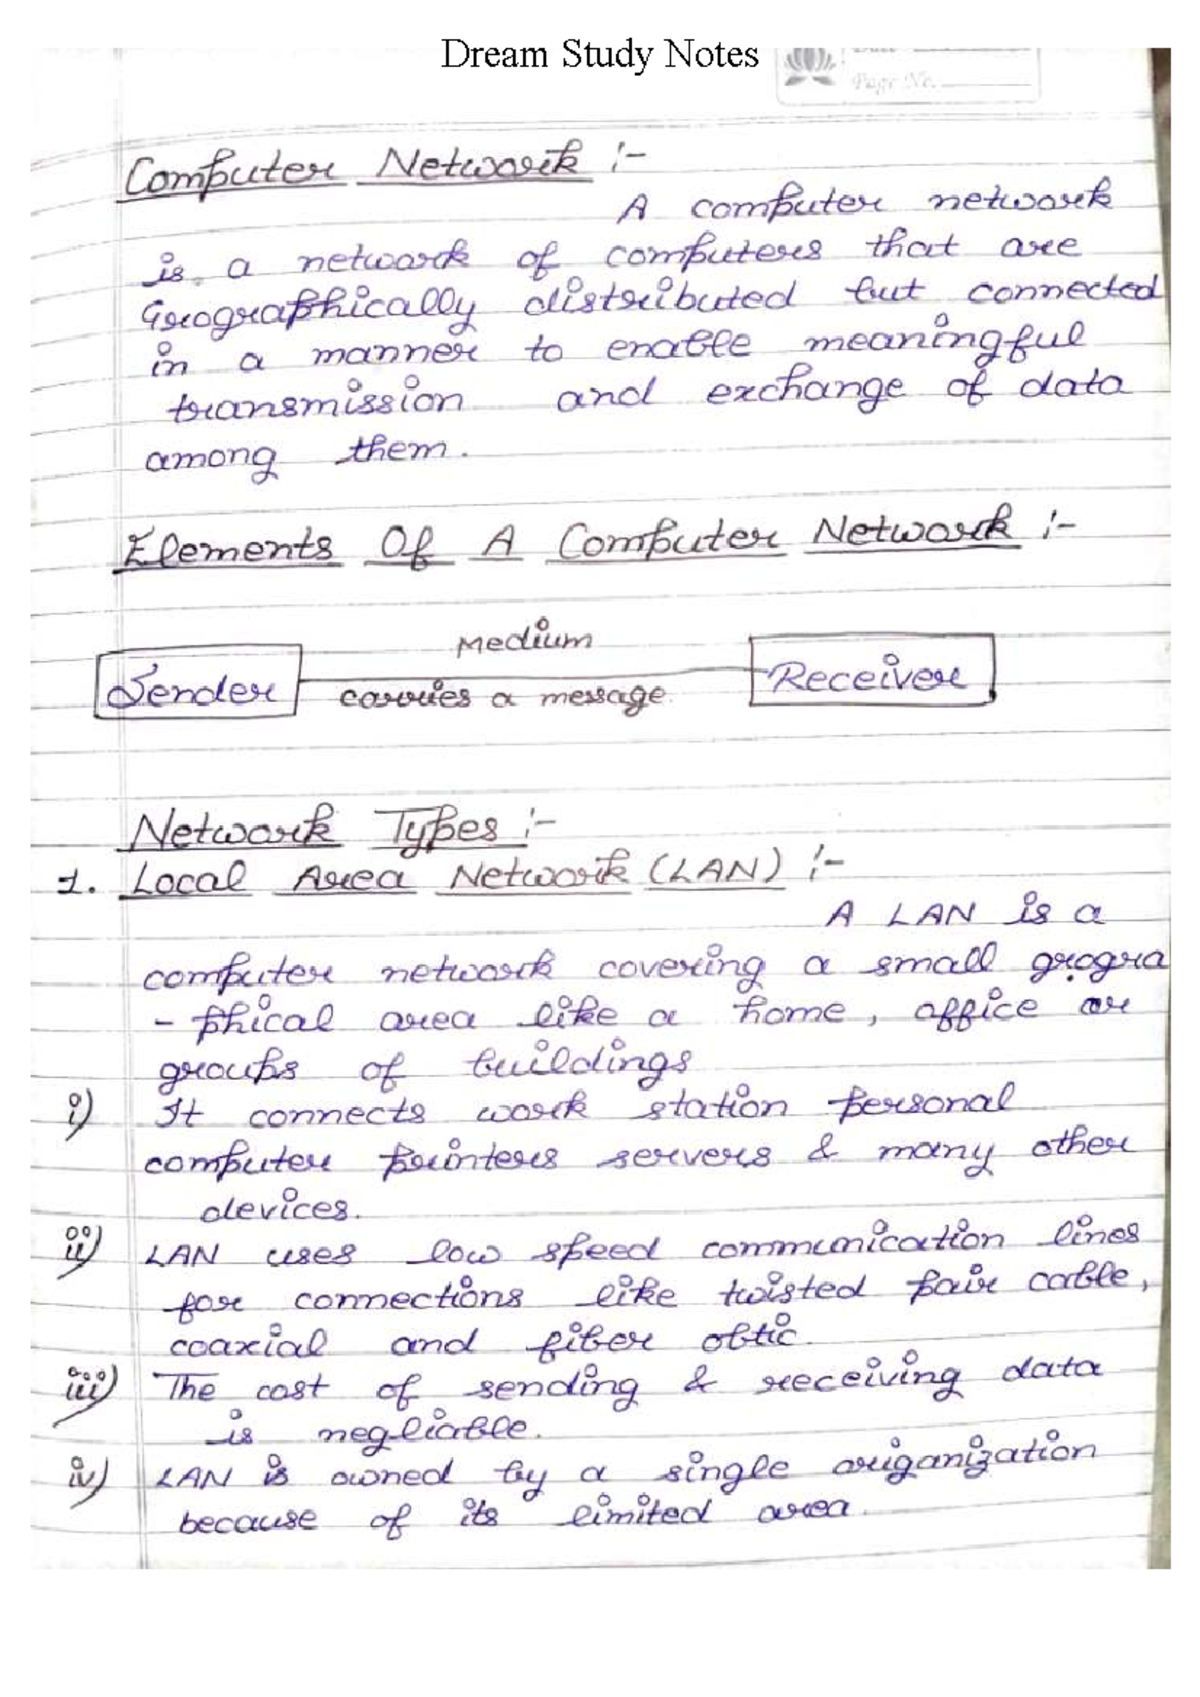 Dream Study Notes
Page No.
Computer Network :-
A computer network
is a network of computers that are
Geographically distributed but connected
in a manner to enable meaningful
transmission and exchange of data
among them.
Elements Of A Computer Network :-
Medium
Sender
Receiver
carries a message
Network Types :-
1. Local Area Network (LAN) :-
A LAN is a
computer network covering a small geogra
- phical area like a home, office or
groups of buildings
i) It connects work station personal
computer printers servers & many other
devices.
ii) LAN uses low speed communication lines
for connections like twisted pair cable,
coaxial and fiber obtic.
iii) The cost of sending & receiving data
is negliable.
iv) LAN is owned by a single origanization
because of its limited area.